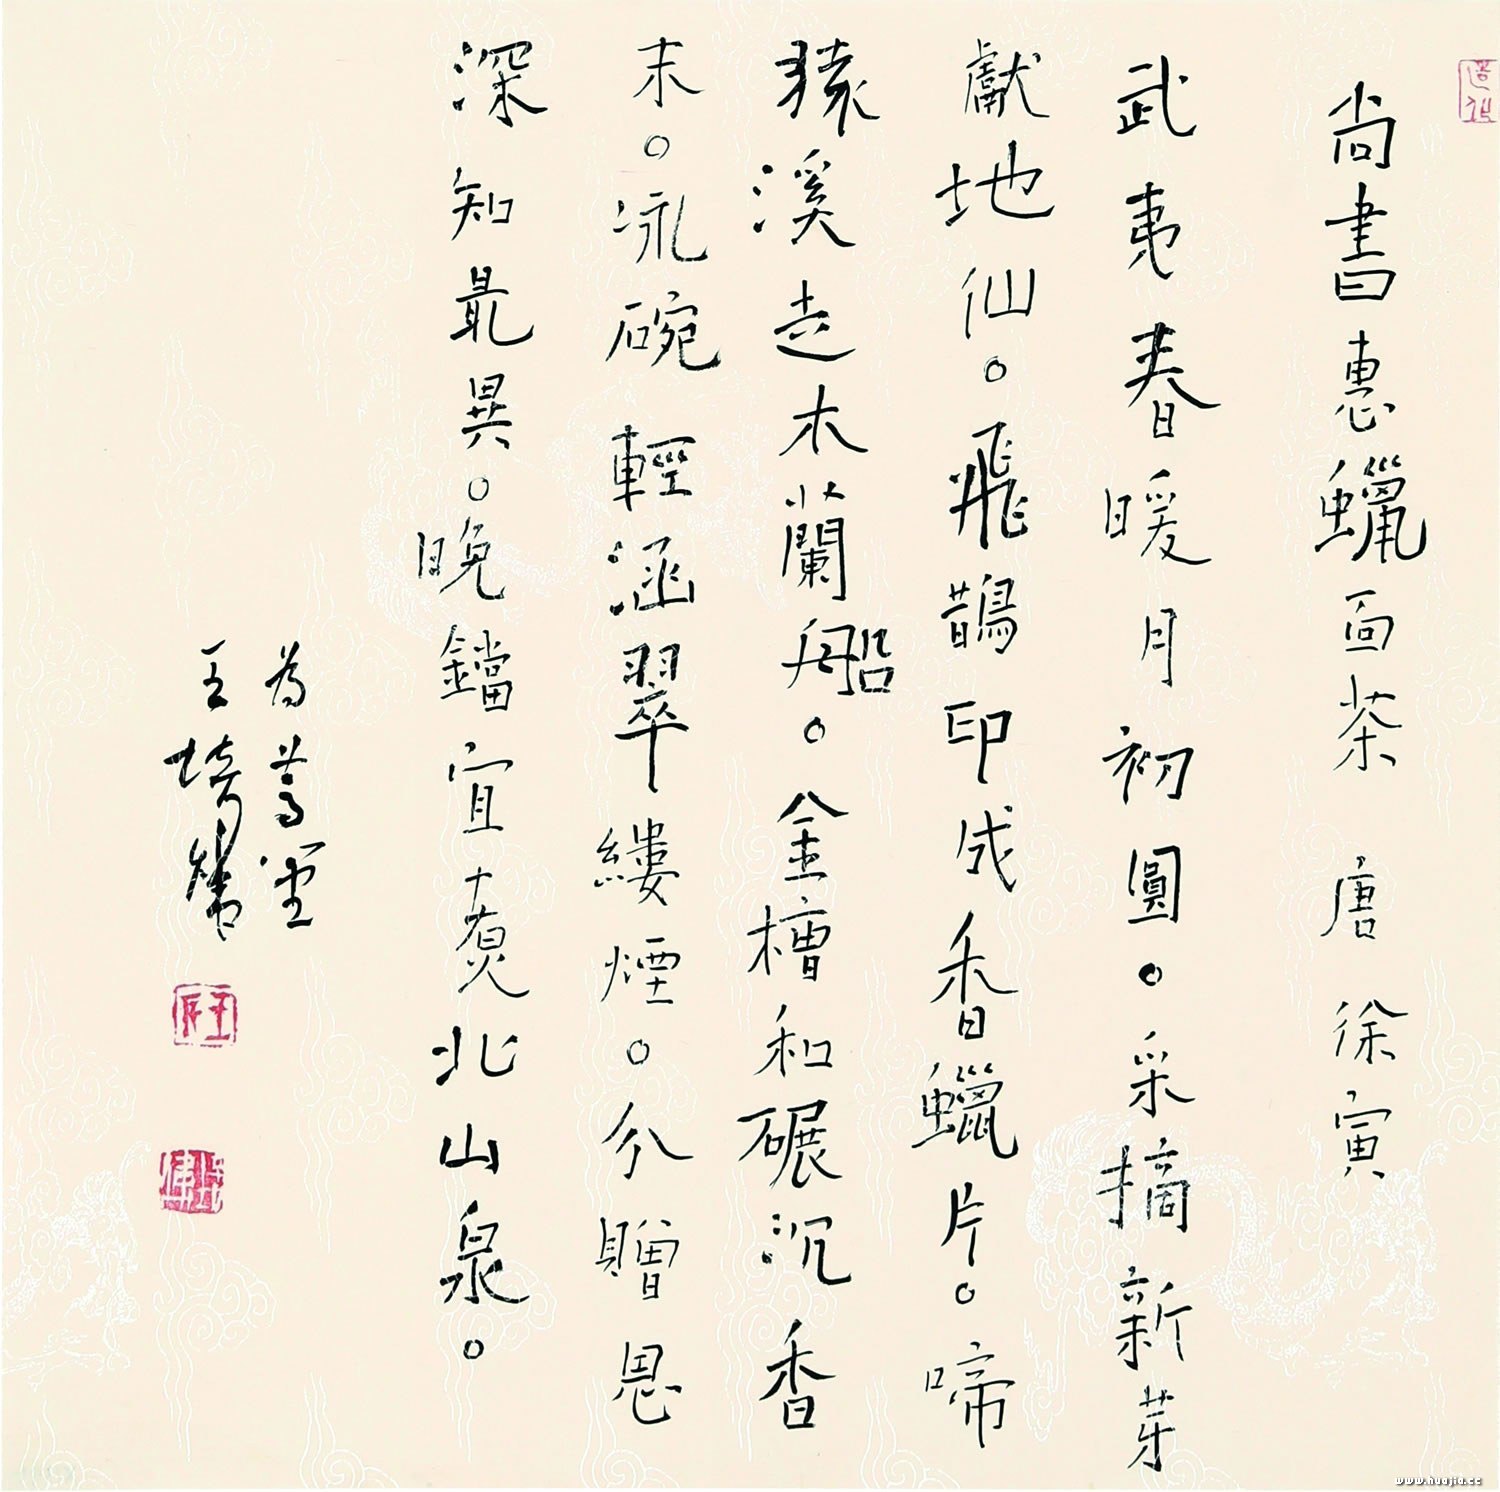 尚書惠蠟面茶 唐 徐寅
武夷春暖月初圓。采摘新芽
獻地仙。飛鵲印成香蠟片。啼
猿溪走木蘭船。金槽和碾沉香
末。冰碗輕涵翠縷煙。分贈恩
深知最異。晚鐺宜煮北山泉。
王培
www.huajia.cc